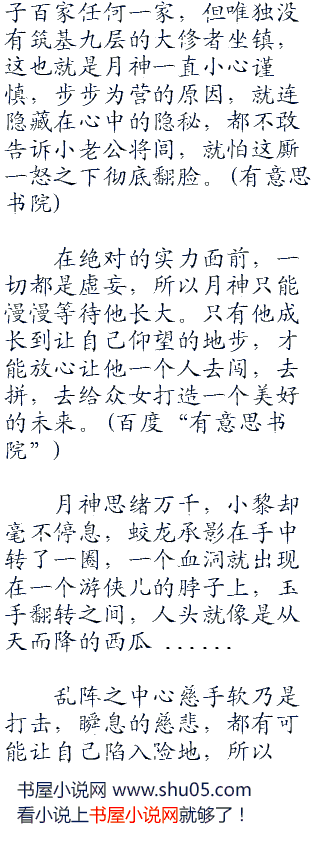 子百家任何一家，但唯独没
有筑基九层的大修者坐镇，
这也就是月神一直小心谨
慎，步步为营的原因，就连
隐藏在心中的隐秘，都不敢
告诉小老公将闾，就怕这厮
一怒之下彻底翻脸。(有意思
书院)
在绝对的实力面前，一
切都是虚妄，所以月神只能
漫漫等待他长大。只有他成
长到让自己仰望的地步，才
能放心让他一个人去闯，去
拼，去给众女打造一个美好
的未来。(百度“有意思书
院”)
月神思绪万千，小黎却
毫不停息，蛟龙承影在手中
转了一圈，一个血洞就出现
在一个游侠儿的脖子上，玉
手翻转之间，人头就像是从
天而降的西瓜 ......
乱阵之中心慈手软乃是
打击，瞬息的慈悲，都有可
能让自己陷入险地，所以
书屋小说网 www.shu05.com
看小说上书屋小说网就够了！